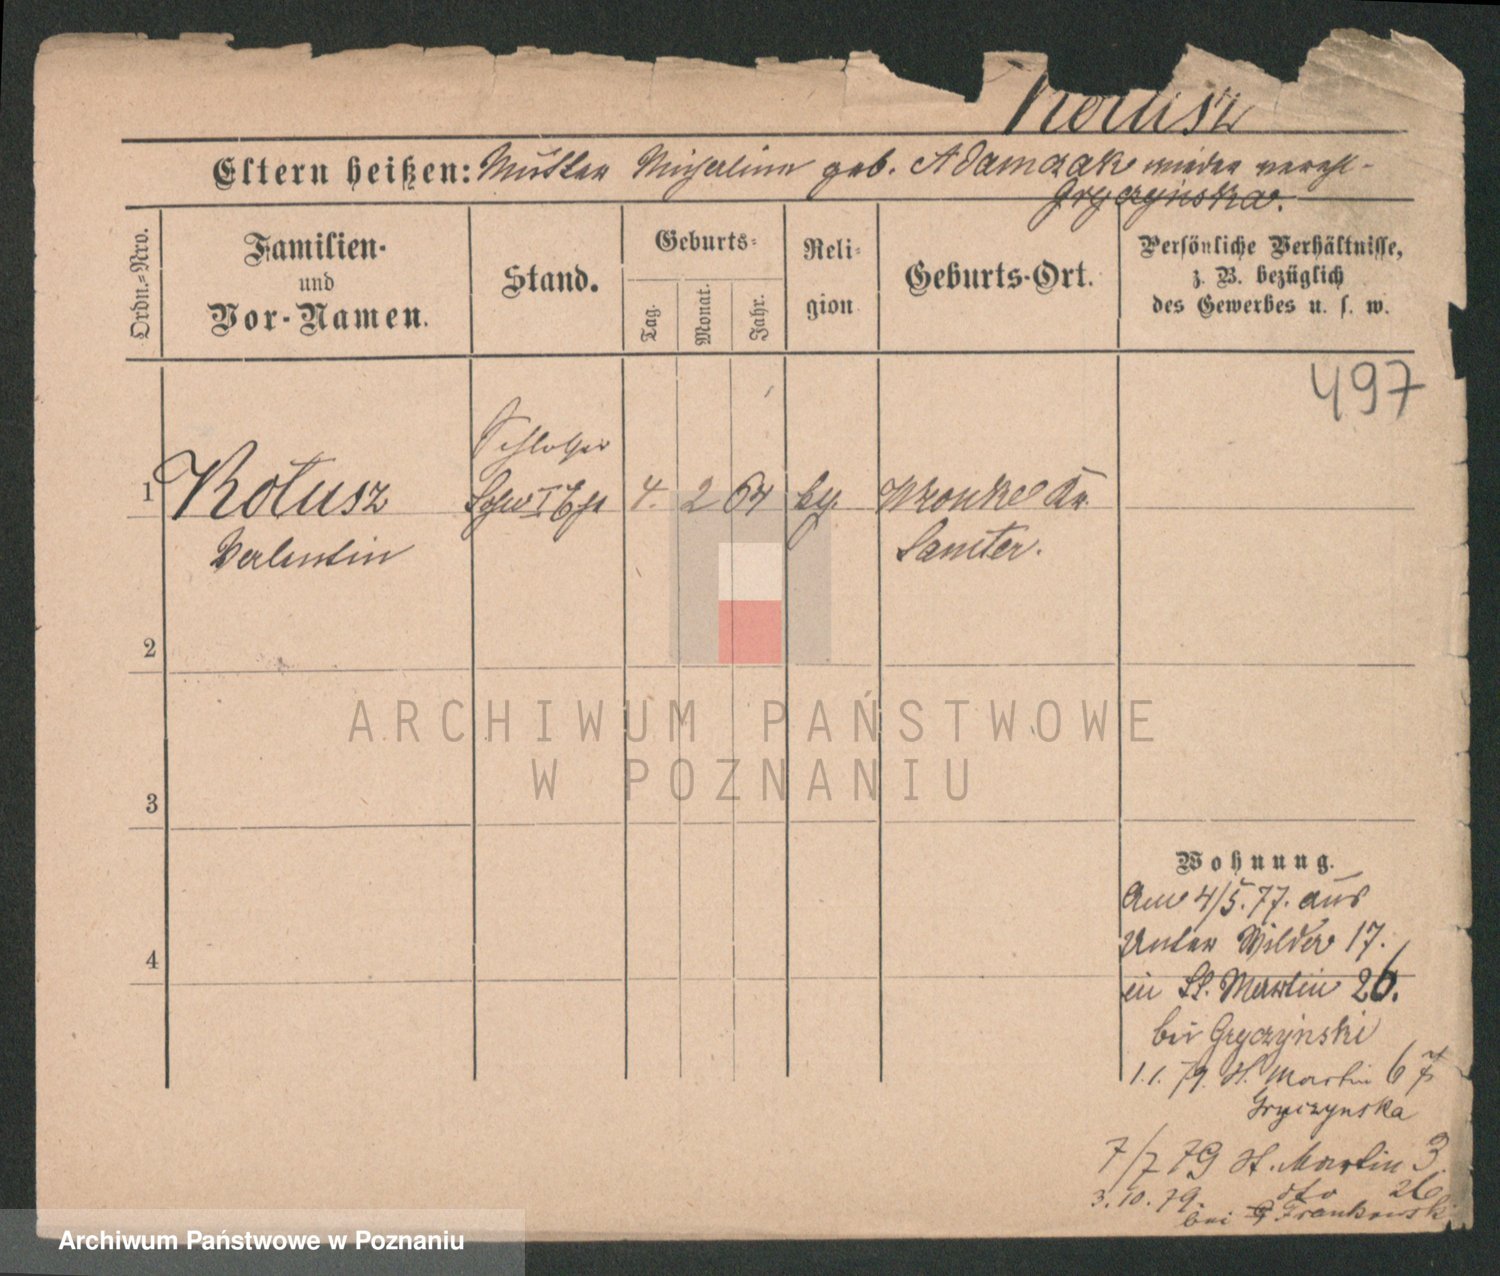 Kotusz
Eltern heißen: Mutter Michalina geb. Adamczak wieder vereh-
Gryczyńska.
Ordn.=Nro.
Familien-
und
Vor-Namen.
Stand.
Geburts=
Tag.
Monat.
Jahr.
Reli-
gion
Geburts-Ort.
Persönliche Verhältnisse,
z. B. bezüglich
des Gewerbes u. s. w.
497
Schlosser
1 Kotusz 4. 2 64 Wronke Kr.
Valentin Samter.
2
3
4
Wohnung.
Am 4/5.77. aus
Unter Wilda 17.
in St. Martin 26.
bei Gryczyński
1.1.79. St. Martin 67
Gryczynska
7/7 79 St. Martin 3.
3.10.79. dto 26
bei Frankowski
ARCHIWUM PAŃSTWOWE
W POZNANIU
Archiwum Państwowe w Poznaniu